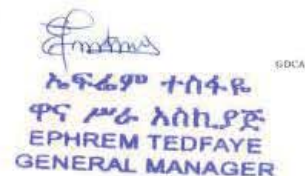 GDCA
ኤፍሬም ተስፋዬ
ዋና ሥራ አስኪያጅ
EPHREM TEDFAYE
GENERAL MANAGER